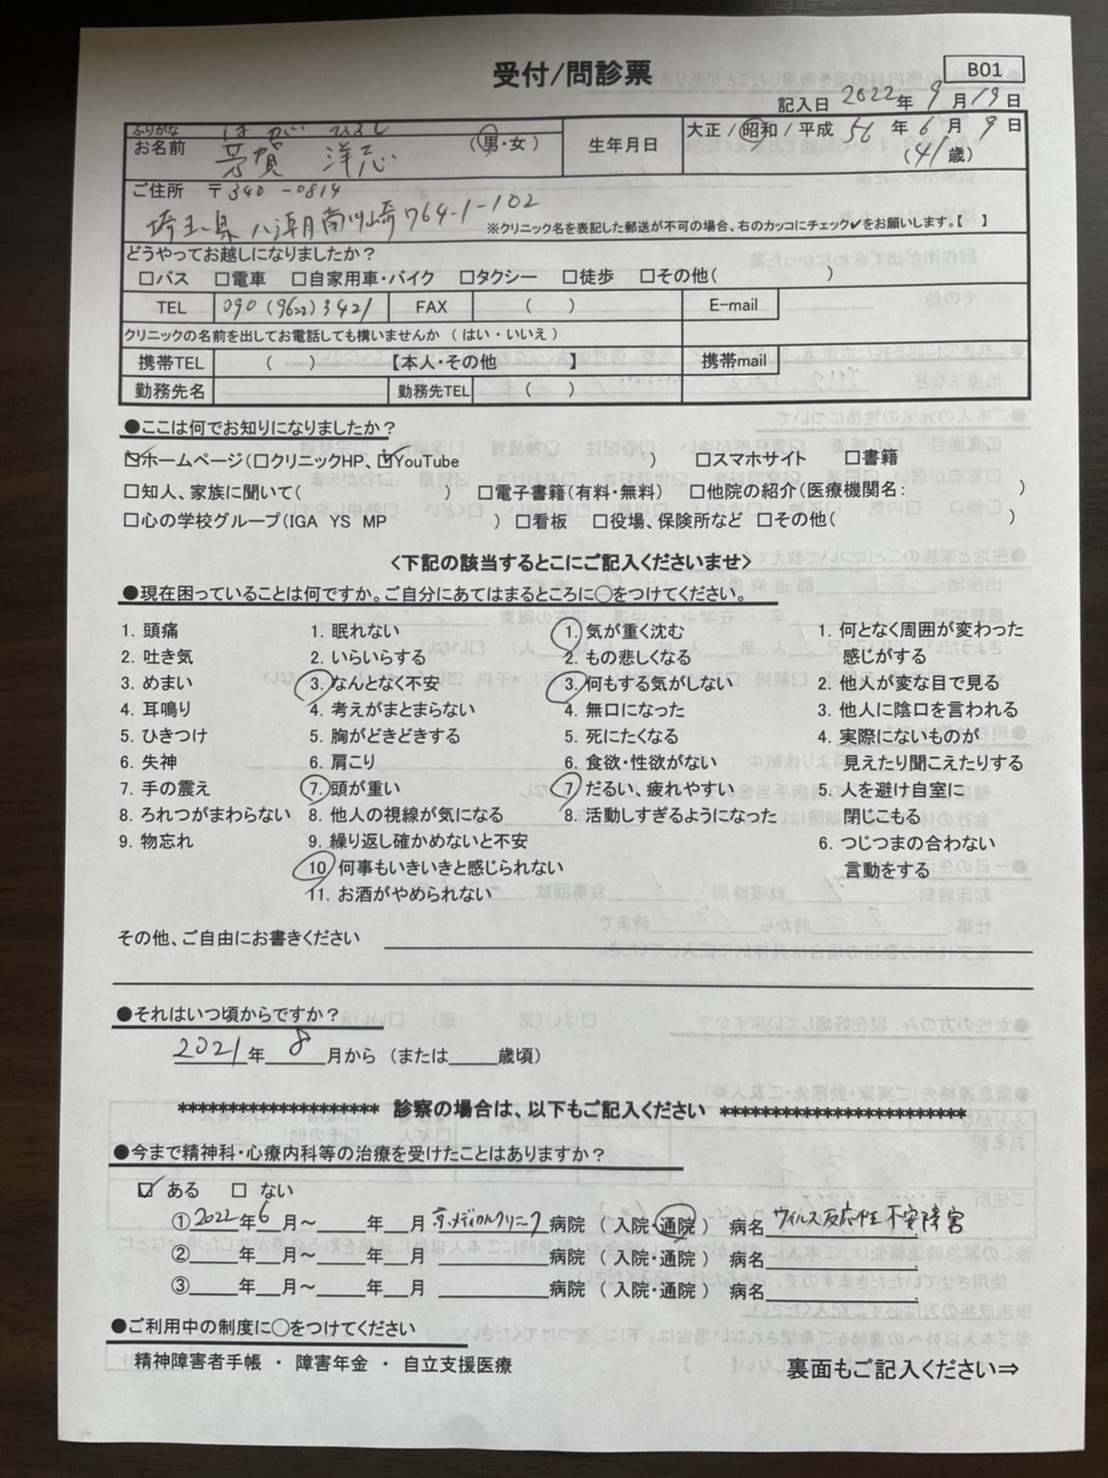 受付/問診票
B01
記入日 2022年 9月19日
ふりがな はが ひろし
お名前 芳賀 洋志 (男・女)
生年月日 大正 / 昭和 / 平成 56年 6月 9日
(41歳)
ご住所 〒340-0814
埼玉県八潮月南川崎764-1-102
※クリニック名を表記した郵送が不可の場合、右のカッコにチェック✔をお願いします。【 】
どうやってお越しになりましたか?
□バス □電車 □自家用車・バイク □タクシー □徒歩 □その他( )
TEL 090(9622)3421 FAX ( ) E-mail
クリニックの名前を出してお電話しても構いませんか (はい・いいえ)
携帯TEL ( ) 【本人・その他 】 携帯mail
勤務先名 勤務先TEL ( )
●ここは何でお知りになりましたか?
☑ホームページ(□クリニックHP、☑YouTube ) □スマホサイト □書籍
□知人、家族に聞いて( ) □電子書籍(有料・無料) □他院の紹介(医療機関名: )
□心の学校グループ(IGA YS MP ) □看板 □役場、保険所など □その他( )
<下記の該当するとこにご記入くださいませ>
●現在困っていることは何ですか。ご自分にあてはまるところに〇をつけてください。
1. 頭痛
2. 吐き気
3. めまい
4. 耳鳴り
5. ひきつけ
6. 失神
7. 手の震え
8. ろれつがまわらない
9. 物忘れ
1. 眠れない
2. いらいらする
3. なんとなく不安
4. 考えがまとまらない
5. 胸がどきどきする
6. 肩こり
7. 頭が重い
8. 他人の視線が気になる
9. 繰り返し確かめないと不安
10 何事もいきいきと感じられない
11. お酒がやめられない
1. 気が重く沈む
2. もの悲しくなる
3. 何もする気がしない
4. 無口になった
5. 死にたくなる
6. 食欲・性欲がない
7 だるい、疲れやすい
8. 活動しすぎるようになった
1. 何となく周囲が変わった
感じがする
2. 他人が変な目で見る
3. 他人に陰口を言われる
4. 実際にないものが
見えたり聞こえたりする
5. 人を避け自室に
閉じこもる
6. つじつまの合わない
言動をする
その他、ご自由にお書きください
●それはいつ頃からですか?
2021年 8月から (または 歳頃)
******************** 診察の場合は、以下もご記入ください ************************
●今まで精神科・心療内科等の治療を受けたことはありますか?
☑ ある □ ない
①2022年6月～ 年 月 メディカルクリニック病院 (入院・通院) 病名 ウイルス反応性不安障害
② 年 月～ 年 月 病院 (入院・通院) 病名
③ 年 月～ 年 月 病院 (入院・通院) 病名
●ご利用中の制度に〇をつけてください
精神障害者手帳 ・ 障害年金 ・ 自立支援医療
裏面もご記入ください⇒